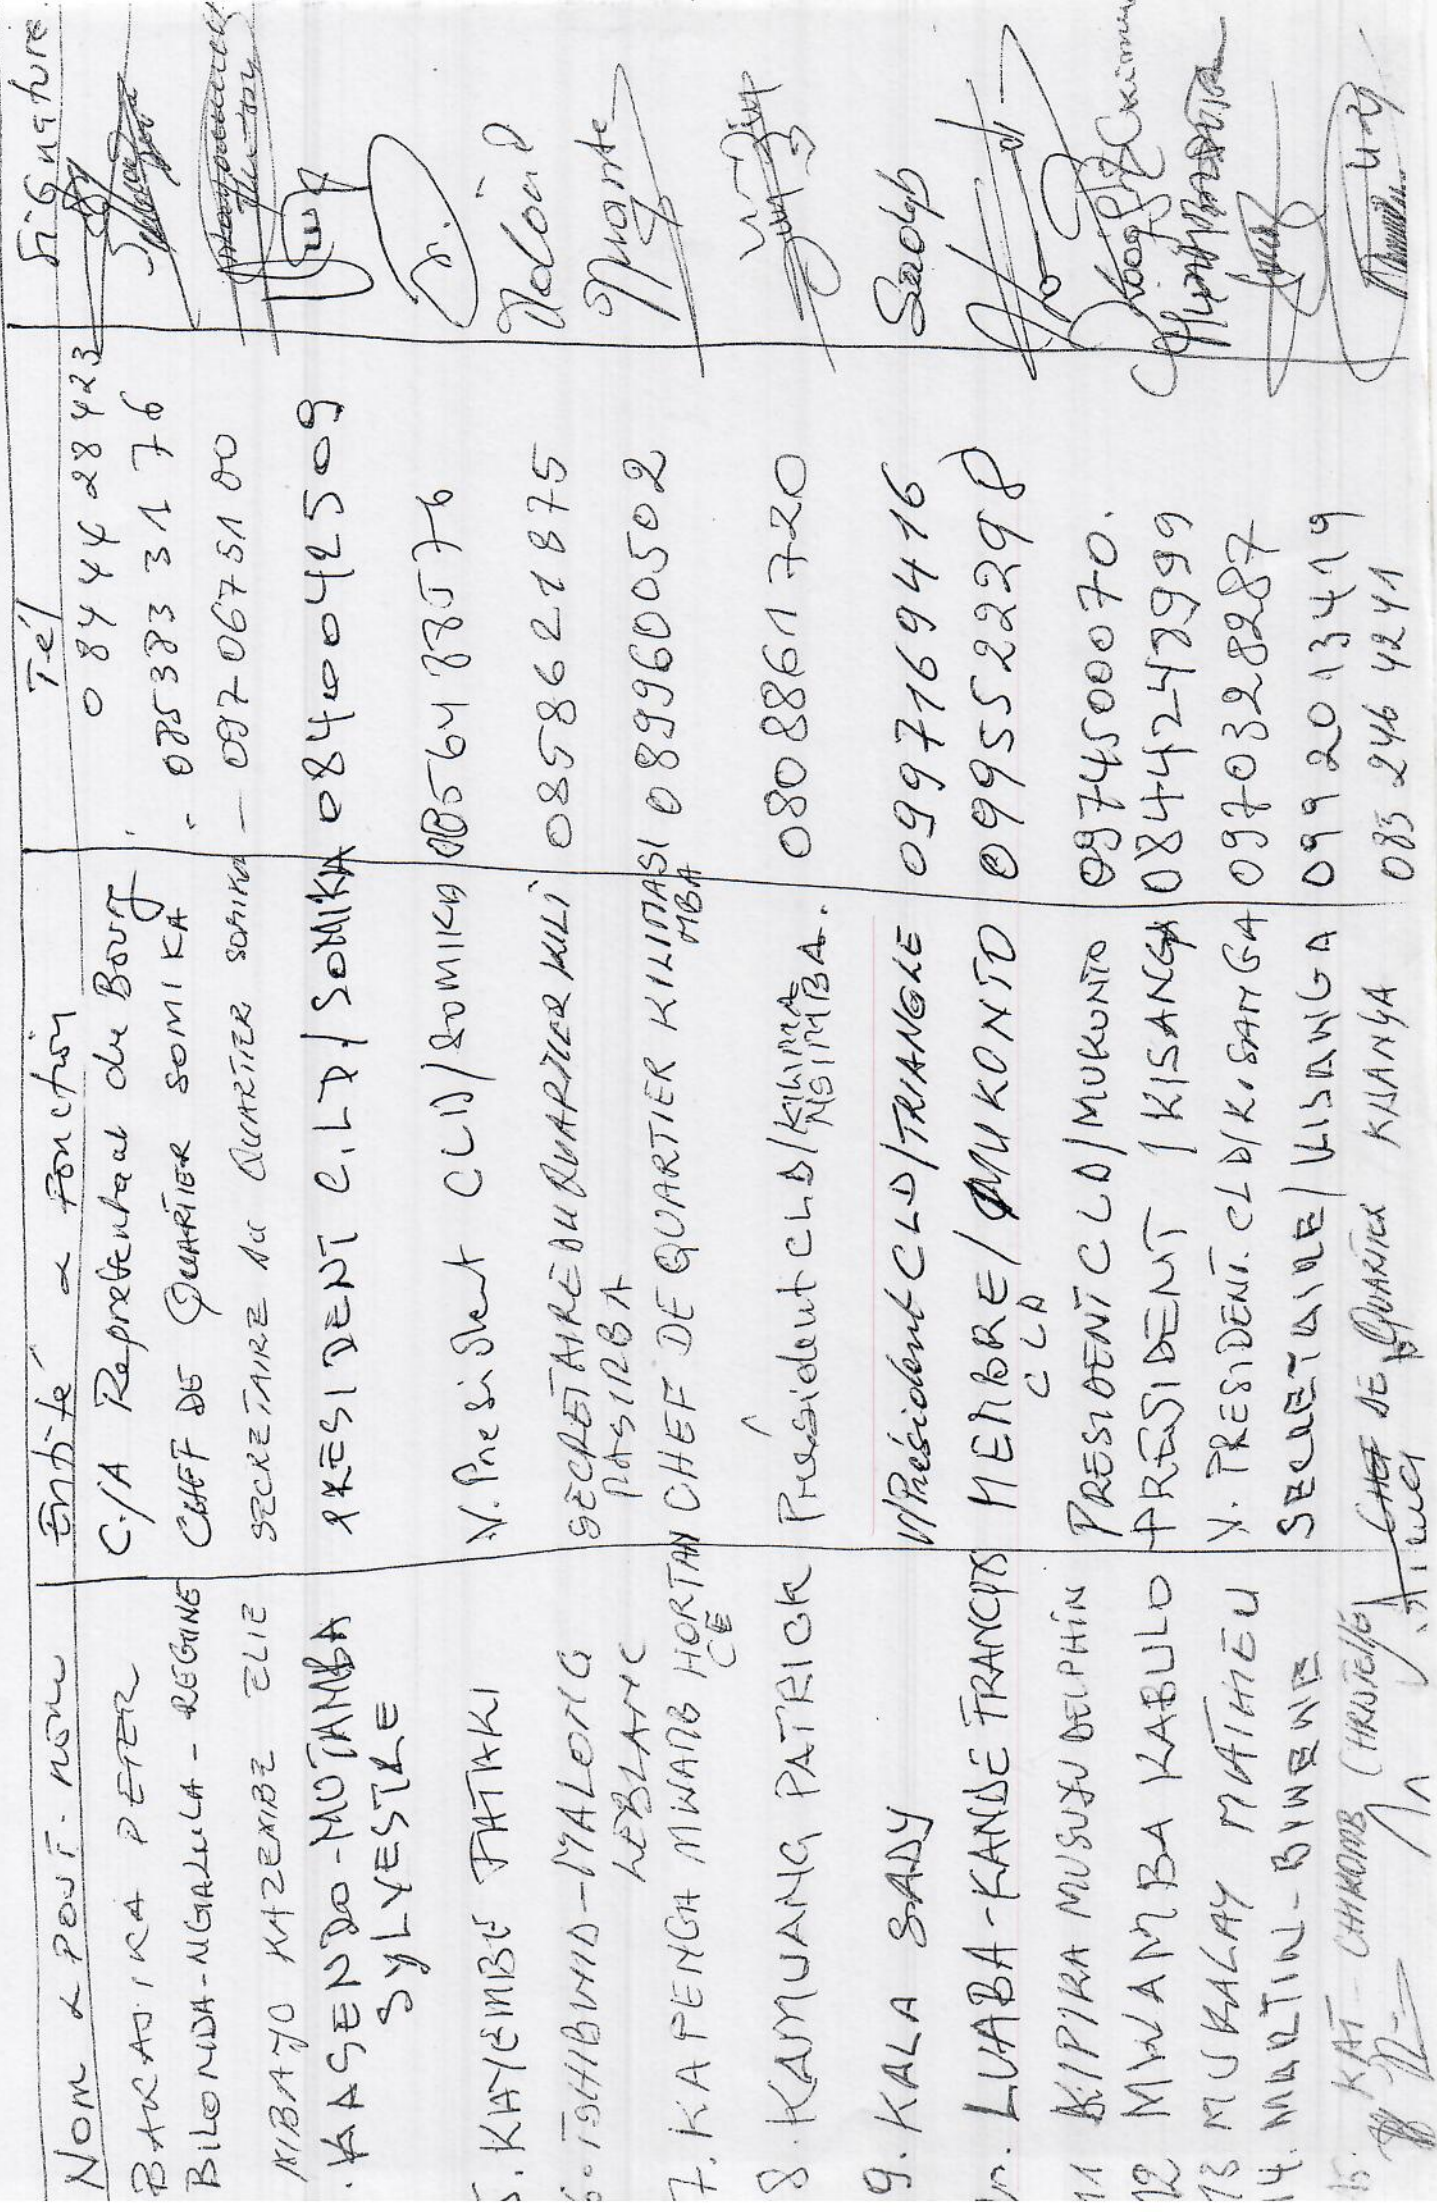 Nom & Post. nom Entité & Fonction Tél Signature
BARAJIKA PETER C/A Représentant du Bourg 0844428423
BILONDA-NGALULA-REGINE CHEF DE QUARTIER SOMIKA 0853833176
KIBAJO KAZEMBE ELIE SECRETAIRE du QUARTIER SOMIKA 0970675100
KASENDO-MUTAMBA PRESIDENT C.L.D/SOMIKA 0840042509
SYLVESTRE
5. KAYEMBE FATAKI V. President CLD/SOMIKA
6. TSHIBWID-MALONG SECRETAIRE DU QUARTIER KILI 0858621875
LEBLANC MASIMBA
7. KAPENGA MWAMB HORTAN CHEF DE QUARTIER KILIMASI 0899600502
CE MBA
8. KAMUANG PATRICK Président CLD/KILIMA 0808861720
NSIMBA.
9. KALA SADY V/Président CLD/TRIANGLE 0997169416 Sady
LUABA-KANDE FRANCOIS MEMBRE/MUKONTO 0995522298
CLD
11 KIPIRA MUSUYU DELPHIN PRESIDENT CLD/MUKONTO 0974500070.
12 MWAMBA KABULO PRESIDENT /KISANGA 0844248999
13 MUKALAY MATHIEU V. PRESIDENT. CLD/KISANGA 0970328287
14. MARTIN-BINENE SECRETAIRE/KISANGA 0992013419
15. KAT CHIKOMB CHRISTELLE CHEF DE QUARTIER KNANGA 085 246 4241